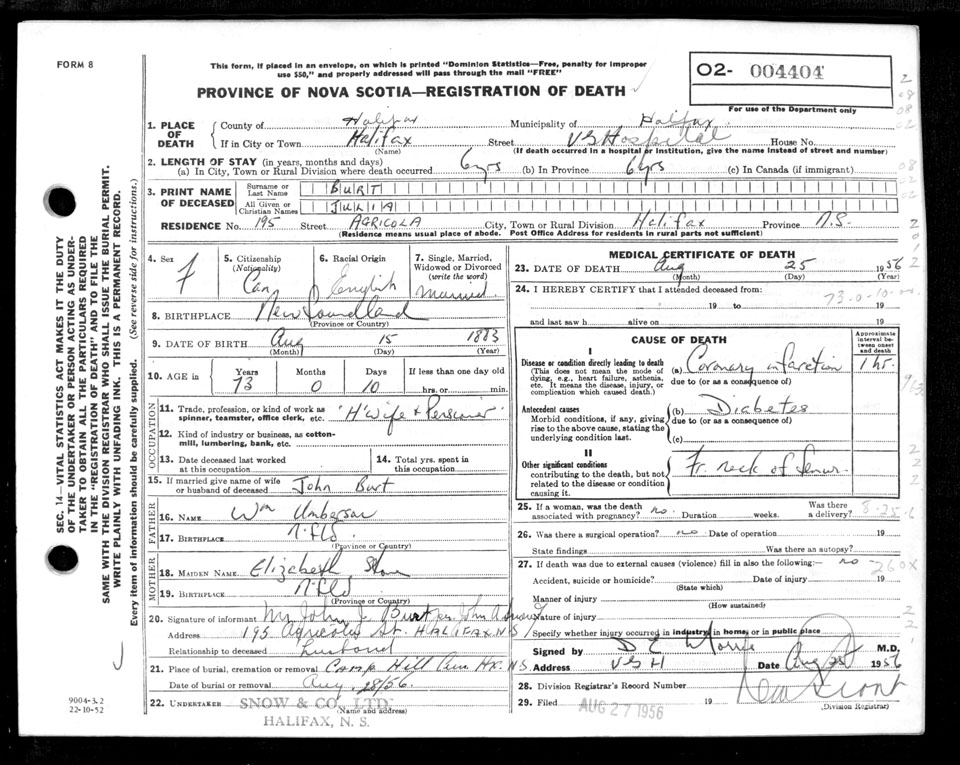 FORM 8
This form, if placed in an envelope, on which is printed "Dominion Statistics—Free, penalty for improper
use $50," and properly addressed will pass through the mail "FREE"
PROVINCE OF NOVA SCOTIA—REGISTRATION OF DEATH
02- 004404
For use of the Department only
1. PLACE OF DEATH
County of Halifax Municipality of Halifax
If in City or Town Halifax Street VG Hospital House No.
(Name) (If death occurred in a hospital or institution, give the name instead of street and number)
2. LENGTH OF STAY (in years, months and days)
(a) In City, Town or Rural Division where death occurred 6 yrs (b) In Province 6 yrs (c) In Canada (if immigrant)
3. PRINT NAME OF DECEASED
Surname or Last Name BURT
All Given or Christian Names JULIA
RESIDENCE No. 195 Street AGRICOLA City, Town or Rural Division Halifax Province N.S.
(Residence means usual place of abode. Post Office Address for residents in rural parts not sufficient)
4. Sex F
5. Citizenship (Nationality) Can
6. Racial Origin English
7. Single, Married, Widowed or Divorced (write the word) Married
8. BIRTHPLACE Newfoundland
(Province or Country)
9. DATE OF BIRTH Aug 15 1883
(Month) (Day) (Year)
10. AGE in Years Months Days If less than one day old
73 0 10 hrs. or min.
OCCUPATION
11. Trade, profession, or kind of work as spinner, teamster, office clerk, etc. H'wife & Pensioner
12. Kind of industry or business, as cotton-mill, lumbering, bank, etc.
13. Date deceased last worked at this occupation
14. Total yrs. spent in this occupation
15. If married give name of wife or husband of deceased John Burt
FATHER
16. Name Wm
17. Birthplace Nfld.
(Province or Country)
MOTHER
18. Maiden Name Elizabeth
19. Birthplace Nfld
(Province or Country)
20. Signature of informant Mr John J. Burt per John
Address 195 Agricola St. HALIFAX NS
Relationship to deceased husband
21. Place of burial, cremation or removal Camp Hill Cem Hx. N.S.
Date of burial or removal Aug. 28/56.
22. UNDERTAKER SNOW & CO. LTD.
(Name and address)
HALIFAX, N. S.
MEDICAL CERTIFICATE OF DEATH
23. DATE OF DEATH Aug 25 1956
(Month) (Day) (Year)
24. I HEREBY CERTIFY that I attended deceased from:
19 to 19
73-0-10
and last saw h alive on 19
CAUSE OF DEATH
Approximate interval between onset and death
I
Disease or condition directly leading to death
(This does not mean the mode of dying, e.g., heart failure, asthenia, etc. It means the disease, injury, or complication which caused death.)
(a) Coronary infarction 1 hr.
due to (or as a consequence of)
Antecedent causes
Morbid conditions, if any, giving rise to the above cause, stating the underlying condition last.
(b) Diabetes
due to (or as a consequence of)
(c)
II
Other significant conditions
contributing to the death, but not related to the disease or condition causing it.
Fr. neck of femur.
25. If a woman, was the death associated with pregnancy? no. Duration weeks. Was there a delivery?
8-25-6
26. Was there a surgical operation? no Date of operation 19
State findings Was there an autopsy?
27. If death was due to external causes (violence) fill in also the following:— no
260X
Accident, suicide or homicide? Date of injury 19
(State which)
Manner of injury
(How sustained)
Nature of injury
Specify whether injury occurred in industry, in home, or in public place
Signed by D E Morris M.D.
Address VGH Date Aug 1956
28. Division Registrar's Record Number
29. Filed AUG 27 1956 19
(Division Registrar)
SEC. 14—VITAL STATISTICS ACT MAKES IT THE DUTY
OF THE UNDERTAKER OR PERSON ACTING AS UNDER-
TAKER TO OBTAIN ALL THE PARTICULARS REQUIRED
IN THE "REGISTRATION OF DEATH" AND TO FILE THE
SAME WITH THE DIVISION REGISTRAR WHO SHALL ISSUE THE BURIAL PERMIT.
WRITE PLAINLY WITH UNFADING INK. THIS IS A PERMANENT RECORD.
Every item of information should be carefully supplied. (See reverse side for instructions.)
9004-3.2
22-10-52